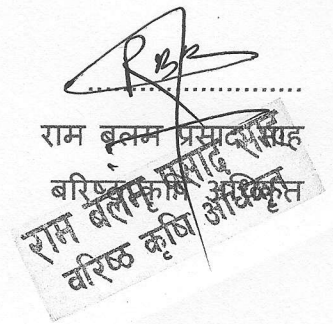 RBP
राम बलम प्रसाद साह
बरिष्ठ कृषि अधिकृत
राम बलम प्रसाद साह
वरिष्ठ कृषि अधिकृत